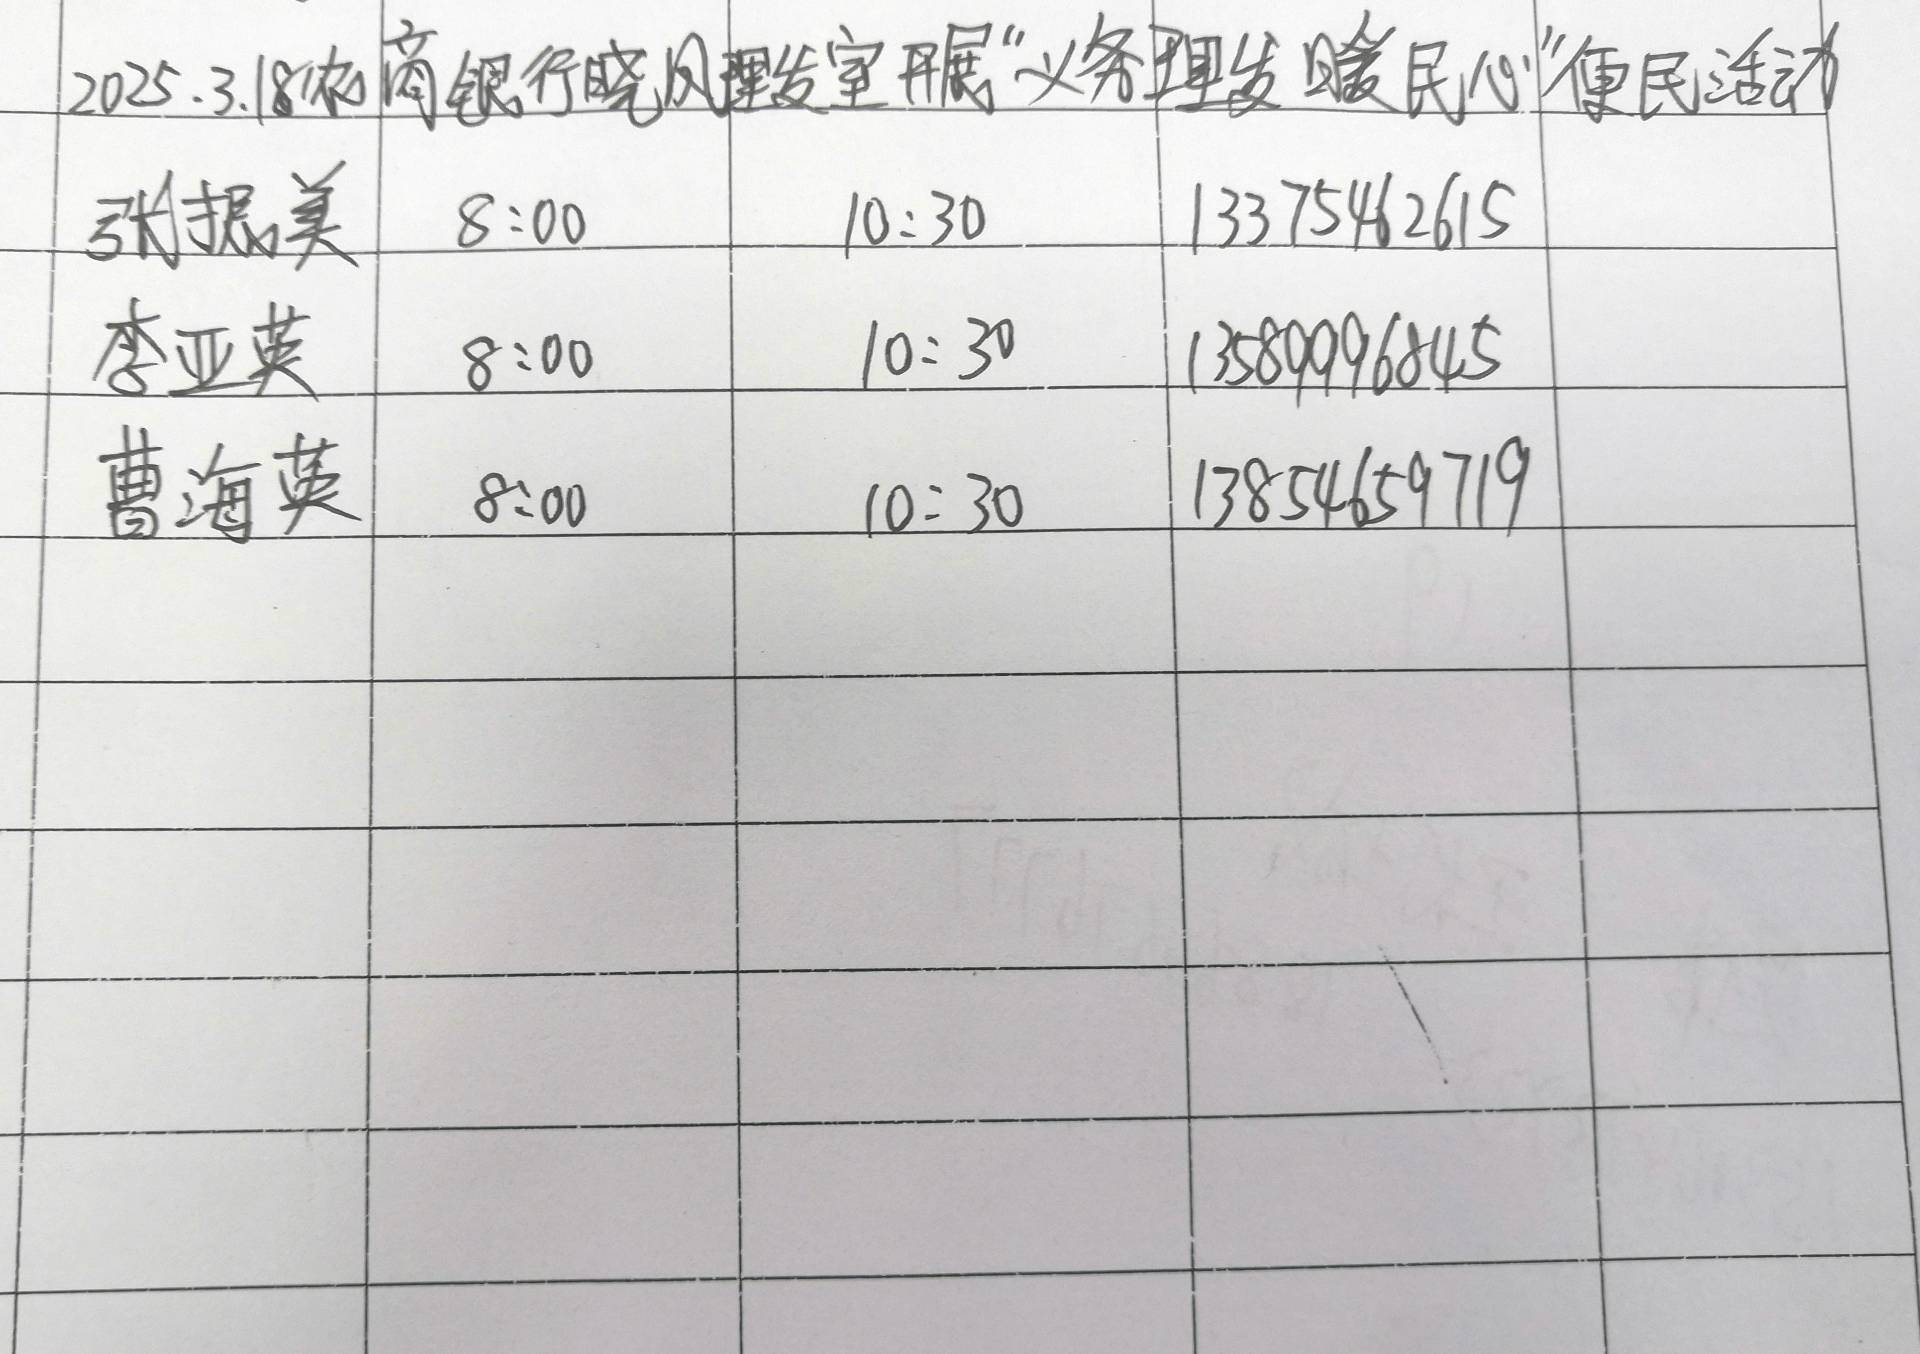 2025.3.18依托商银行晓风理发室开展“义务理发暖民心”便民活动
张振美 8:00 10:30 13375462615
李亚英 8:00 10:30 13589996845
曹海英 8:00 10:30 13854659719